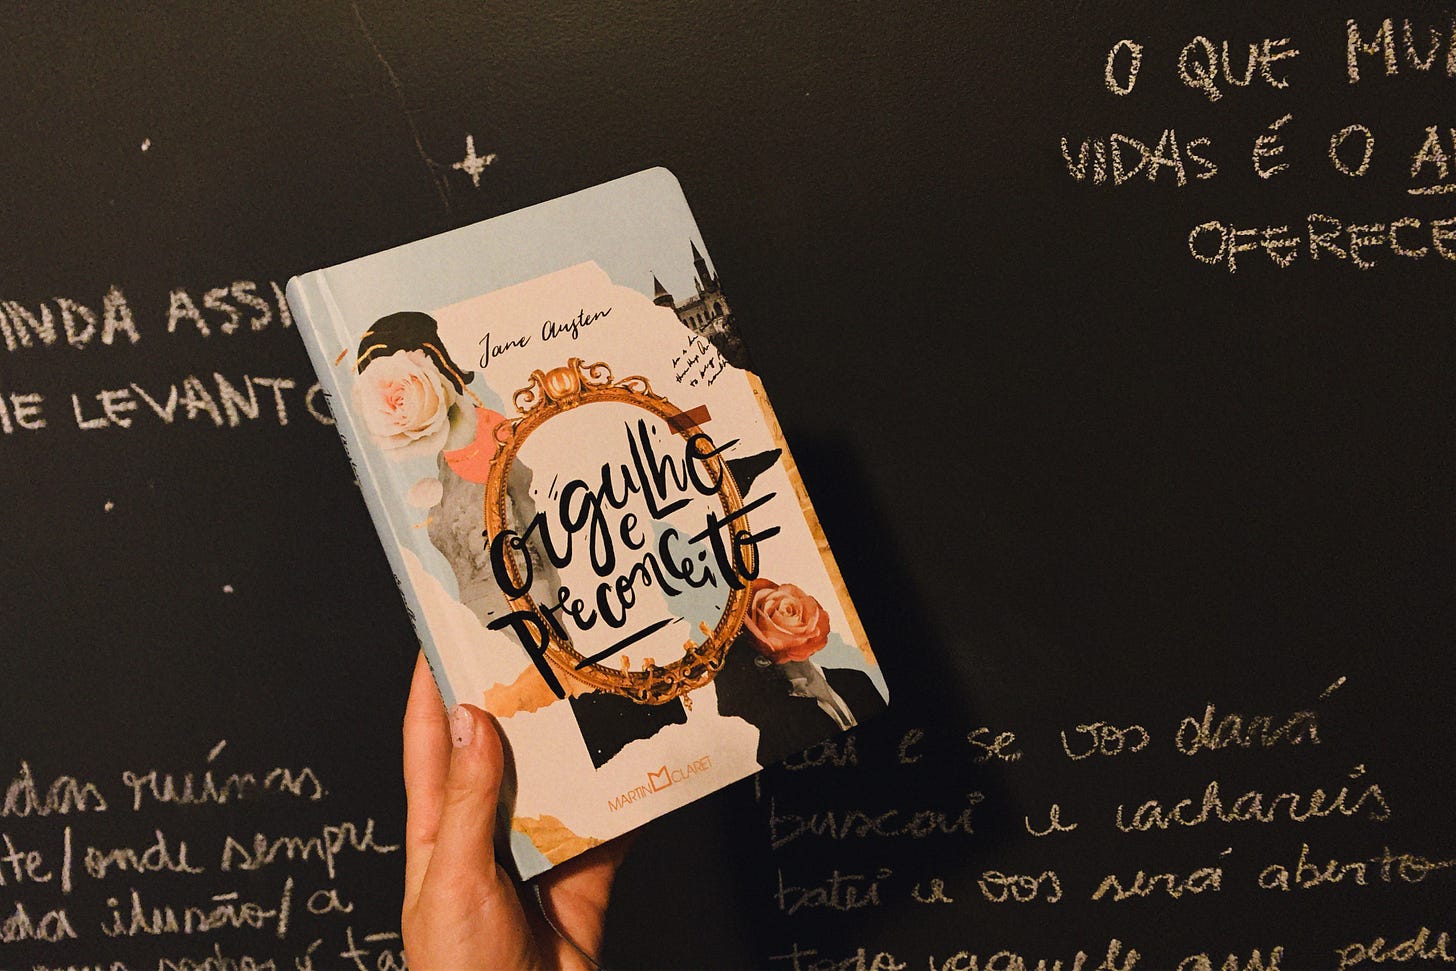 O QUE
VIDAS É O
OFERECE
INDA ASSI
ME LEVANTO
Jane Austen
orgulho
e
preconceito
MARTIN CLARET
das ruínas
te/onde sempre
da ilusão/a
e se vos dará
buscai e achareis
batei e vos será aberto
todo aquele que pede